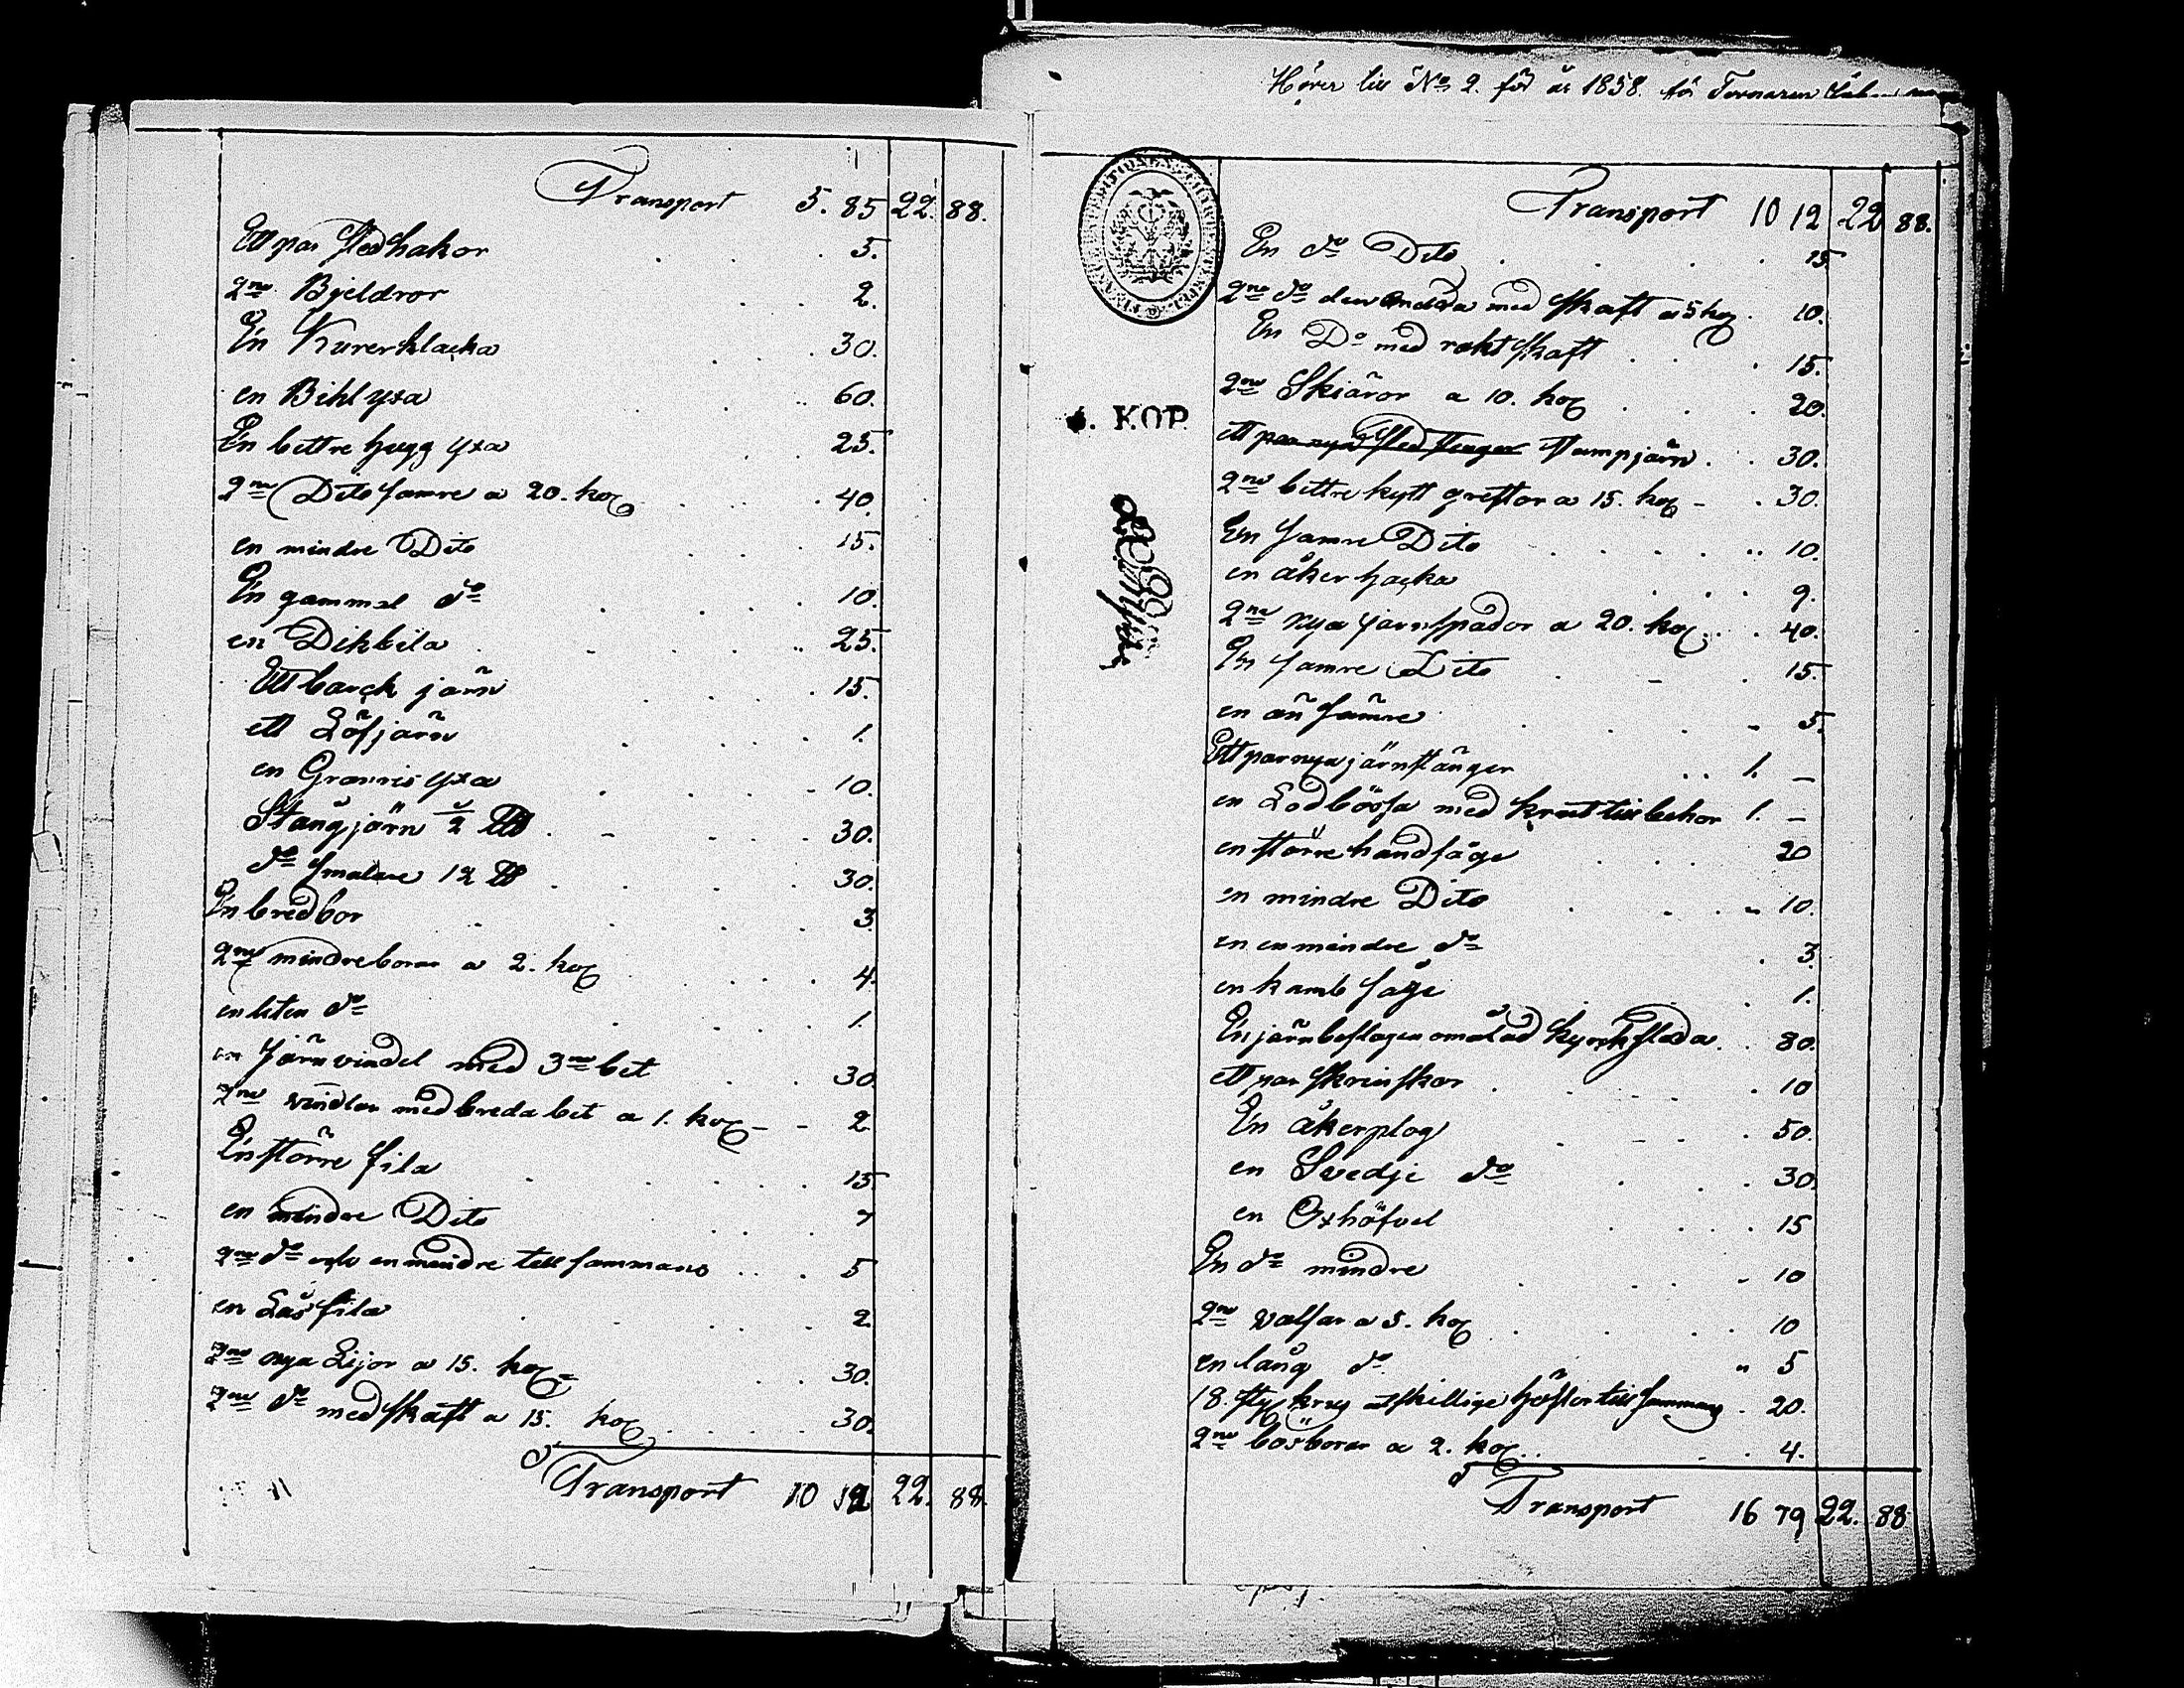 Transport 5. 85 22. 88.
Ett par sledhakor 5.
2ne Bjeldror 2.
En Kurerklacka 30.
en Bihl yxa 60.
En bettre hugg yxa 25.
2ne Dito samre a 20. kop 40.
en mindre Dito 15.
En gammal do 10.
en Dikbila 25.
Ett barck jarn 15.
ett Löfjärn 1.
en Granris yxa 10.
Stångjärn ½ 30.
do smalare 12 ℔ 30.
En bredbor 3
2ne mindre borar a 2. kop 4.
en liten do 1.
en Järnvindel med 3ne bet 30.
2ne vindlar med breda bet a 1. kop 2
En större fila 15
en mindre Dito 7
2ne do och en mindre till sammans 5
en Låsfila 2
2ne nya Lijor a 15. kop 30.
2ne do med skaft a 15. kop 30.
Transport 10 12 22. 88.
Hörer till No 2. för år 1858. för
Transport 10 12 22 88.
En do Dito 15
2ne do den andra med skaft a 5 kop 10.
En Do med rakt skaft 15.
2ne Skiäror a 10. kop 20.
ett par nya Sled stenger Stampjärn 30.
2ne bettre kytt greftor a 15. kop 30.
En samre Dito 10.
en åker hacka 9.
2ne nya jarnspador a 20. kop 40.
En samre Dito 15.
en än sämre 5.
Ett par nya järnstänger 1. –
en Lodbössa med krut tillbehor 1. –
en större handsåge 20
en mindre Dito 10.
en en mindre do 3
en kamb såge 1.
En järnbeslagen omålad kyrkslada 80.
ett par skrinskor 10
En åkerplog 50.
en Svedje do 30.
en Oxhöfvel 15
En do mindre 10
2ne valsar a 5. kop 10
en lång do 5
18. styk krug atskillige höflor till sammans 20.
2ne bösborar a 2. kop 4.
Transport 16 79 22. 88
KOP